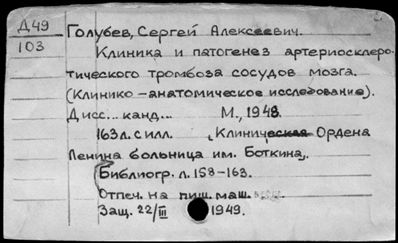 Д49 Голубев, Сергей Алексеевич.
103
Клиника и патогенез артериосклеро-
тического тромбоза сосудов мозга.
(Клинико-анатомическое исследование).
Дисс... канд... М., 1948.
163л. с илл. (Клиническая Ордена
Ленина больница им. Боткина).
Библиогр. л. 158-163.
Отпеч. на пиш. маш.
Защ. 22/III 1949.